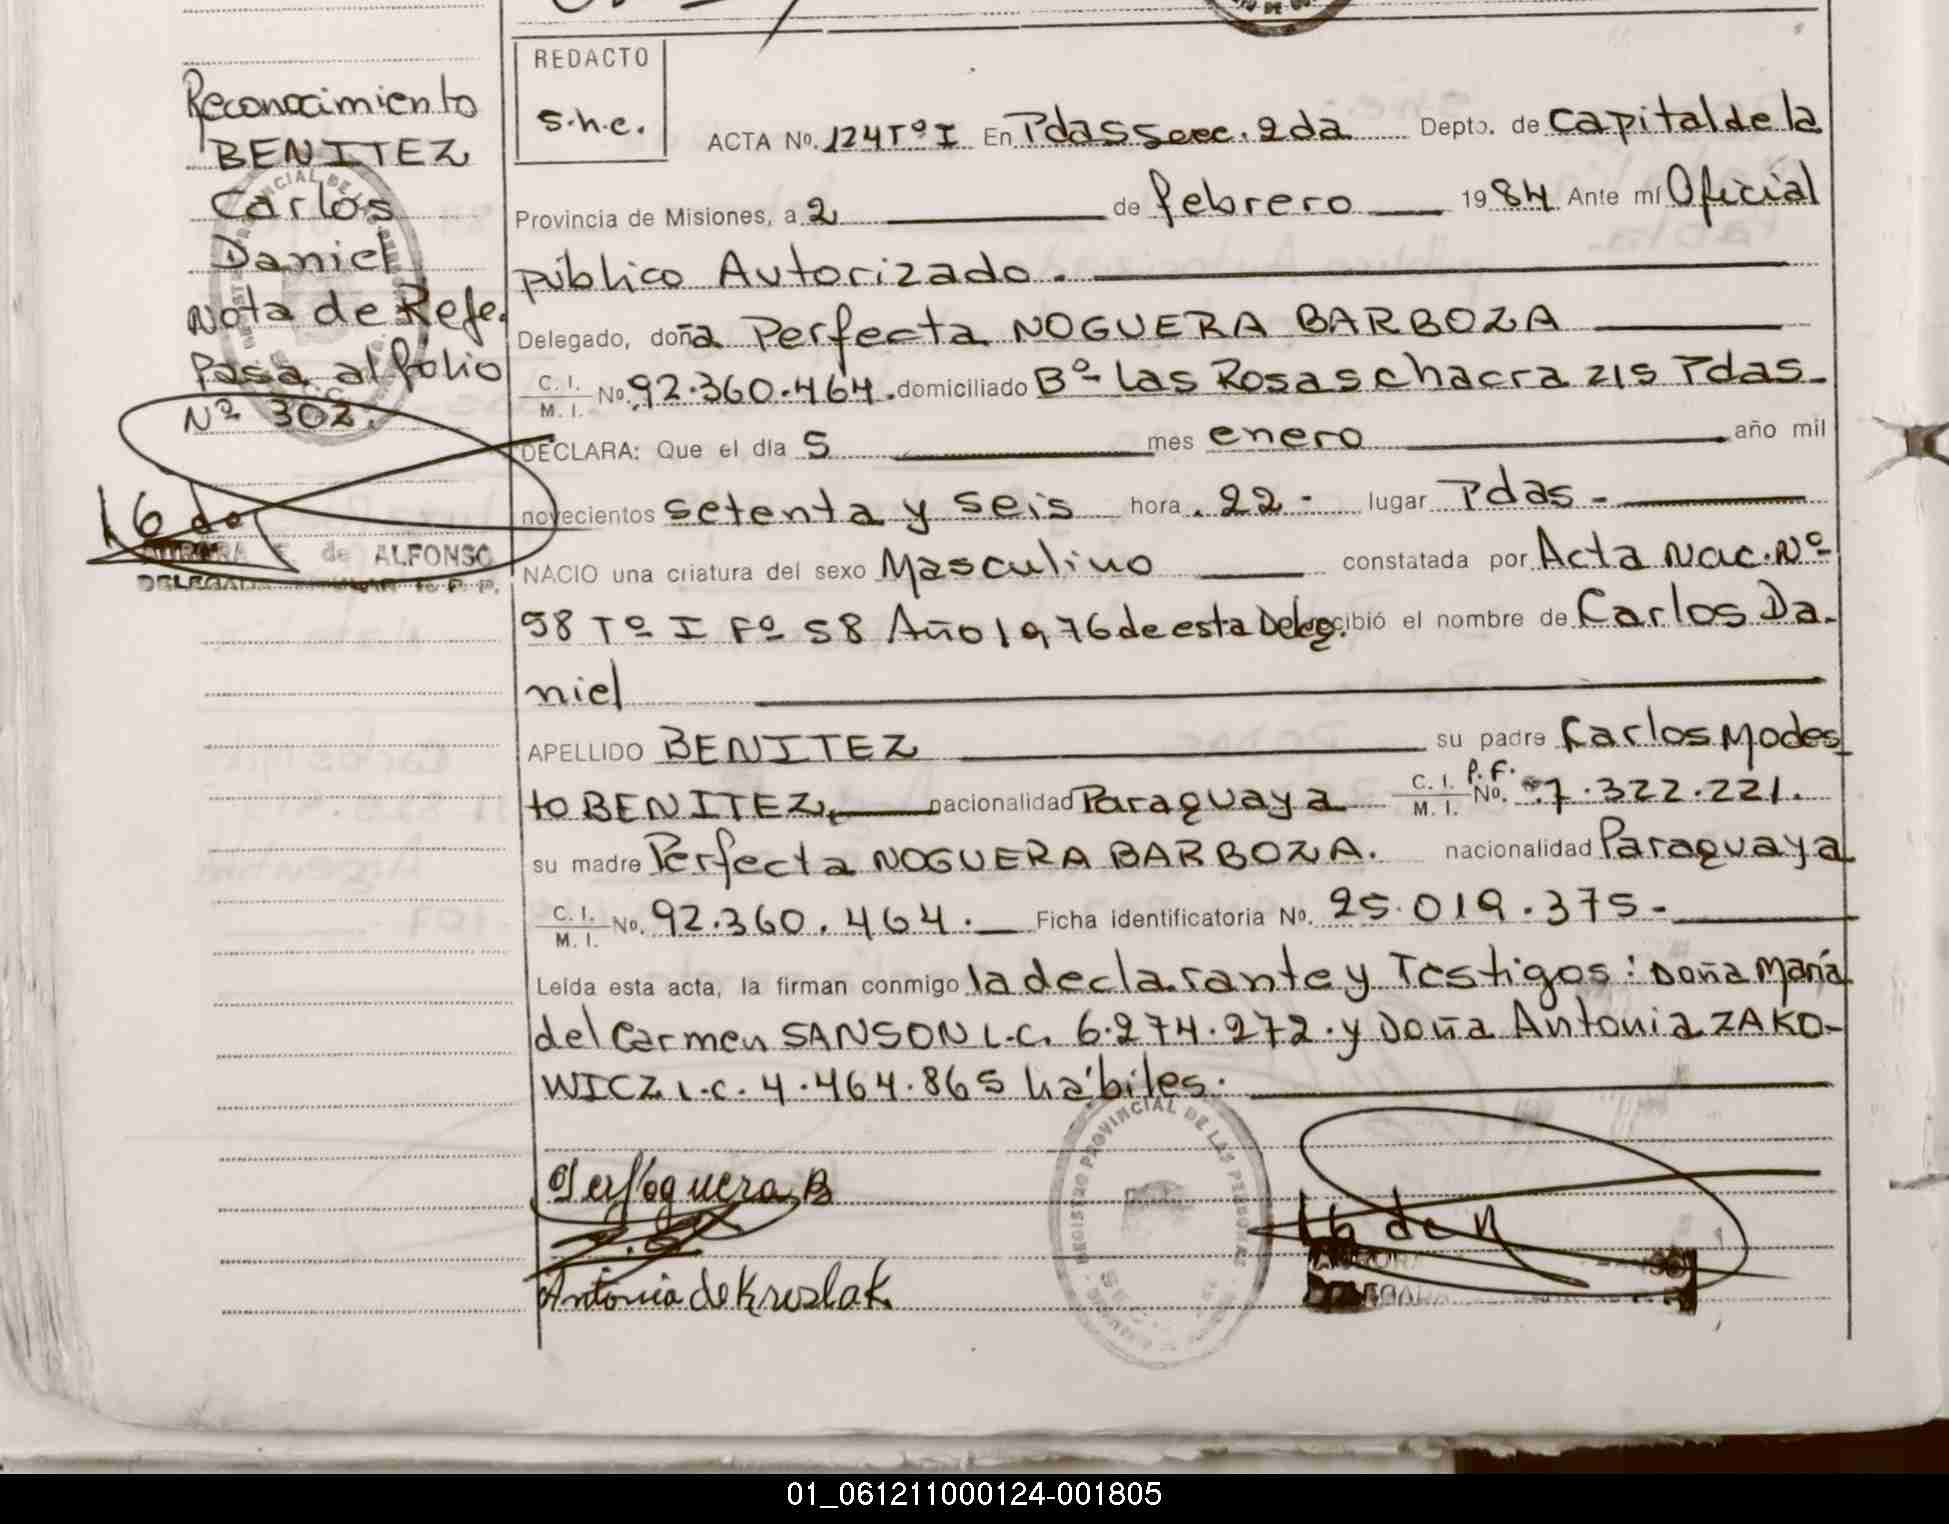 Reconocimiento
BENITEZ
Carlos
Daniel
Nota de Refe.
Pasa al folio
Nº 302.
de ALFONSO
REDACTO
s.h.c.
ACTA No. 124 Tº I En Pdas Secc. 2da Depto. de Capital de la
Provincia de Misiones, a 2 de febrero 1984 Ante mí Oficial
público Autorizado.
Delegado, doña Perfecta NOGUERA BARBOZA
C. I. M. I. No. 92.360.464. domiciliado Bº las Rosas chacra 215 Pdas.
DECLARA: Que el día 5 mes enero año mil
novecientos setenta y seis hora. 22- lugar Pdas-
NACIO una criatura del sexo Masculino constatada por Acta Nac. Nº
58 Tº I Fº 58 Año 1976 de esta Deleg. recibió el nombre de Carlos Da-
niel
APELLIDO BENITEZ su padre Carlos Modes
to BENITEZ, nacionalidad Paraguaya C. I. M. I. P.F. No. 7.322.221.
su madre Perfecta NOGUERA BARBOZA. nacionalidad Paraguaya
C. I. M. I. No. 92.360.464. Ficha identificatoria No. 25.019.375-
Leída esta acta, la firman conmigo la declarante y Testigos: Doña María
del Carmen SANSON L.C. 6.274.272. y Doña Antonia ZAKO-
WICZ L.C. 4.464.865 hábiles.
REGISTRO PROVINCIAL DE LAS PERSONAS
Antonia de Kruslak
01_061211000124-001805